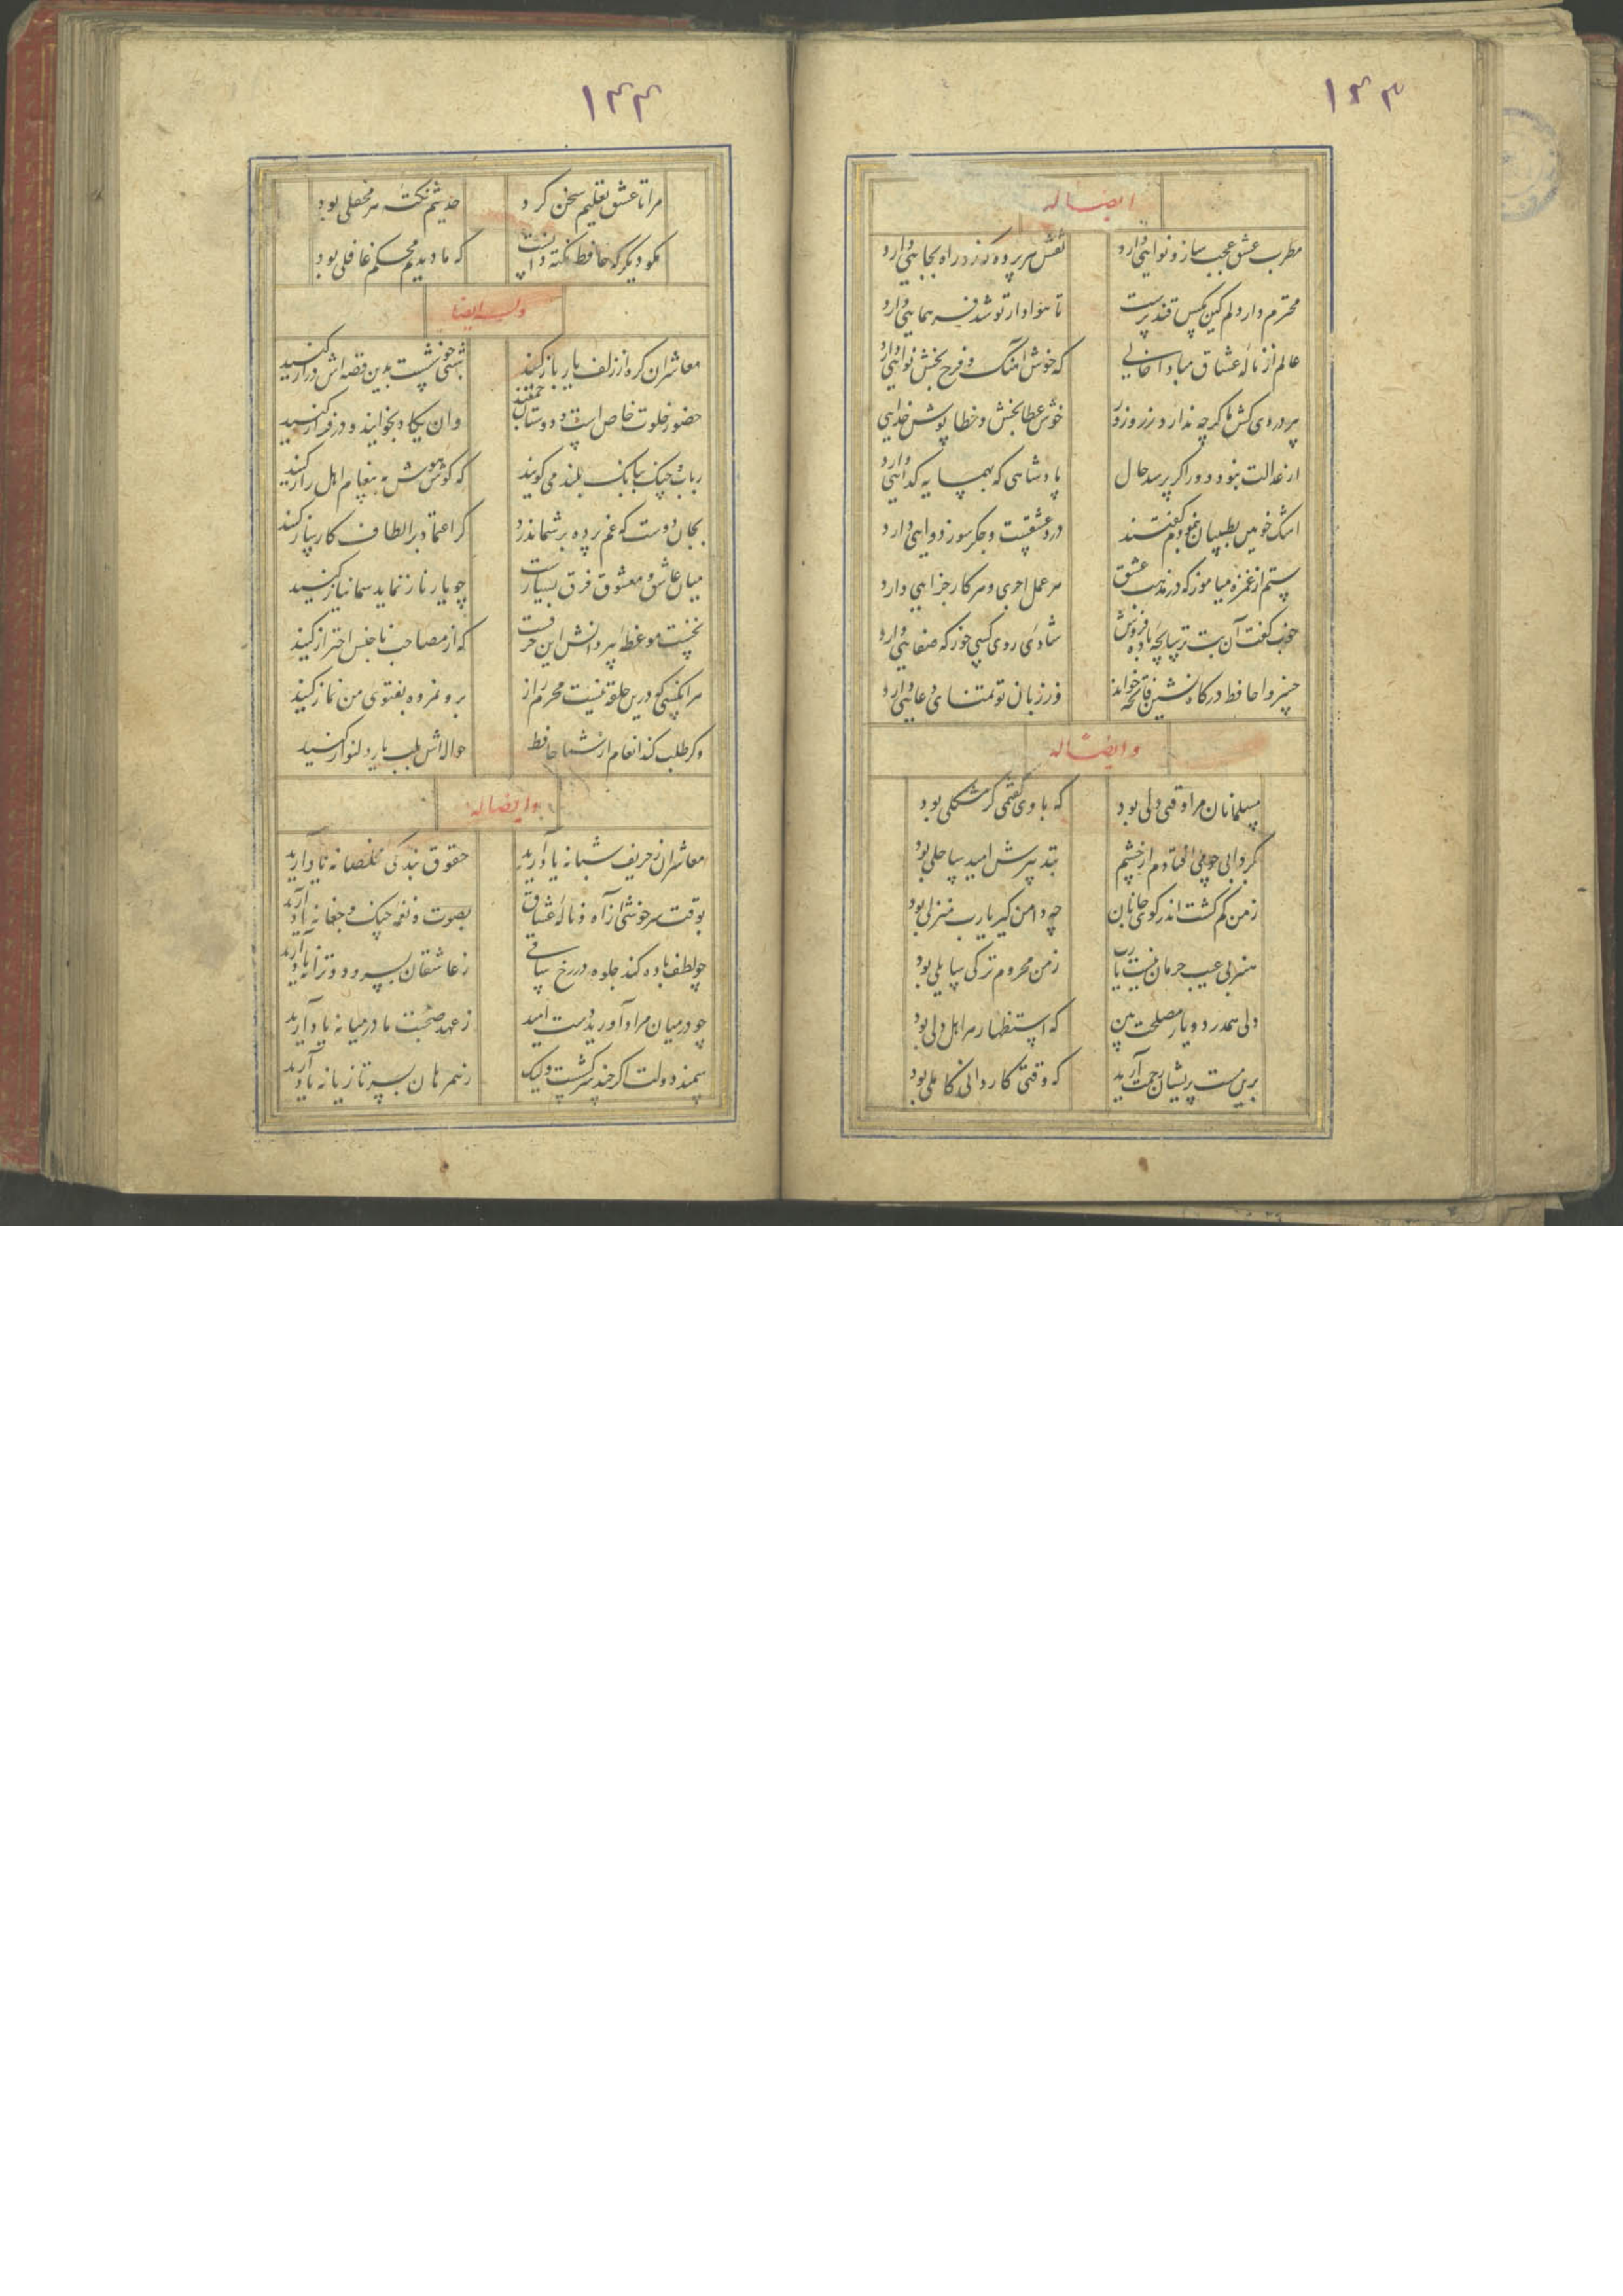 ۱۴۳
ایضاله
مطرب عشق عجب ساز و نوایی دارد نقش هر پرده که زد راه بجایی دارد
محترم دار دلم کین مکس قند پرست تا هوادار تو شد فر همایی دارد
عالم از ناله عشاق مبادا خالی که خوش آهنک و فرح بخش نوایی دارد
پیر دردی کش ما کرچه ندارد زر و زور خوش عطا بخش و خطا پوش خدایی دارد
از عدالت نبود دور اگر پرسد حال پادشاهی که بهمسایه کدایی دارد
اشک خونین بطبیبان بنمودم کفتند درد عشقست و جکر سوز دوایی دارد
ستم از غمزه میاموز که در مذهب عشق هر عمل اجری و هر کار جزایی دارد
خوب کفت آن بت ترسا بچه باده فروش شادی روی کسی خور که صفایی دارد
خسروا حافظ درکاه نشین فاتحه خواند وز زبان تو تمنای دعایی دارد
وایضاله
مسلمانان مرا وقتی دلی بود که با وی کفتمی کر مشکلی بود
بکردابی چو می افتادم از چشم بتدبیرش امید ساحلی بود
ز من کم کشت اندر کوی جانان چه دامن کیر یا رب منزلی بود
هنر بی عیب حرمان نیست یا رب ز من محروم تر کی سایلی بود
دلی همدرد و یار مصلحت بین که استظهار هر اهل دلی بود
برین مست پریشان رحمت آرید که وقتی کاردانی کاملی بود
۱۴۴
مرا تا عشق تعلیم سخن کرد حدیثم نکته هر محفلی بود
مکو دیکر که حافظ نکته دانست که ما دیدیم محکم غافلی بود
وله ایضا
معاشران کره از زلف یار باز کنید شبی خوشست بدین قصه اش دراز کنید
حضور خلوت خاص است و دوستان جمعند وان یکاد بخوانید و در فراز کنید
رباب و چنک ببانک بلند می کویند که کوش هوش به پیغام اهل راز کنید
بجان دوست که غم پرده بر شما ندرد کر اعتماد بر الطاف کارساز کنید
میان عاشق و معشوق فرق بسیارست چو یار ناز نماید شما نیاز کنید
نخست موعظه پیر دانش این حرفست که از مصاحب ناجنس احتراز کنید
هر آنکسی کو درین حلقه نیست محرم راز برو نمرده بفتوی من نماز کنید
وکر طلب کند انعام از شما حافظ حوالاش بلب یار دلنواز کنید
وایضاله
معاشران ز حریف شبانه یاد آرید حقوق بندکی مخلصانه یاد آرید
بوقت سرخوشی از آه و ناله عشاق بصوت و نغمه چنک و چغانه یاد آرید
چو لطف باده کند جلوه در رخ ساقی ز عاشقان بسرود و ترانه یاد آرید
چو در میان مراد آورید دست امید ز عهد صحبت ما در میانه یاد آرید
سمند دولت اکر چند سرکشست ولیک ز همرهان بسر تازیانه یاد آرید